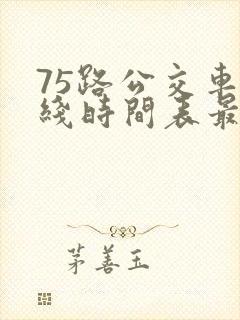 75路公交車
綫時間表最
茅善玉